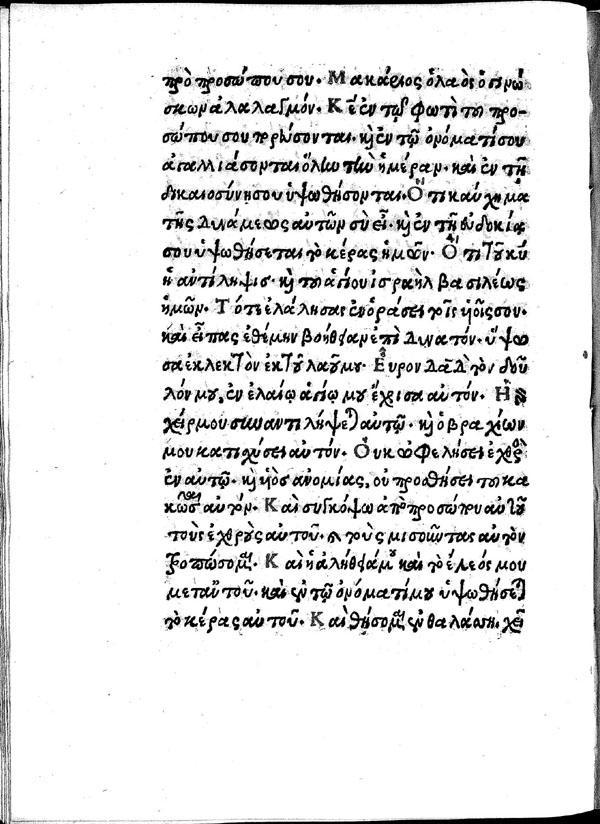 πρὸ προσώπου σου. Μακάριος ὁ λαὸς ὁ γινώ
σκων ἀλαλαγμόν. Κ̅ε̅ ἐν τῷ φωτὶ τοῦ προ-
σώπου σου πορεύσονται. κὶ ἐν τῷ ὀνόματί σου
ἀγαλλιάσονται ὅλην τὴν ἡμέραν. καὶ ἐν τῇ
δικαιοσύνῃ σου ὑψωθήσονται. Ὅτι καύχημα
τῆς δυνάμεως αὐτῶν σὺ εἶ. κὶ ἐν τῇ εὐδοκίᾳ
σου ὑψωθήσεται τὸ κέρας ἡμῶν. Ὅτι τοῦ κ̅υ̅
ἡ ἀντίληψις. κὶ τοῦ ἁγίου ἰσραὴλ βασιλέως
ἡμῶν. Τότε ἐλάλησας ἐν ὁράσει τοῖς υἱοῖς σου.
καὶ εἶπας ἐθέμην βοήθειαν ἐπὶ δυνατόν. ὕψω
σα ἐκλεκτὸν ἐκ τοῦ λαοῦ μου. Εὗρον δ̅α̅δ̅ τὸν δοῦ
λόν μου, ἐν ἐλαίῳ ἁγίῳ μου ἔχρισα αὐτόν. Ἡ
χείρ μου συναντιλήψεται αὐτῷ. κὶ ὁ βραχίων
μου κατισχύσει αὐτόν. Οὐκ ὠφελήσει ἐχθρὸς
ἐν αὐτῷ. κὶ υἱὸς ἀνομίας, οὐ προσθήσει τοῦ κα
κῶσαι αὐτόν. Καὶ συγκόψω ἀπὸ προσώπου αὐτοῦ
τοὺς ἐχθροὺς αὐτοῦ. κὶ τοὺς μισοῦντας αὐτὸν
τροπώσομαι. Καὶ ἡ ἀλήθειά μου καὶ τὸ ἔλεός μου
μετ' αὐτοῦ. καὶ ἐν τῷ ὀνόματί μου ὑψωθήσεται
τὸ κέρας αὐτοῦ. Καὶ θήσομαι ἐν θαλάσσῃ, χεῖ